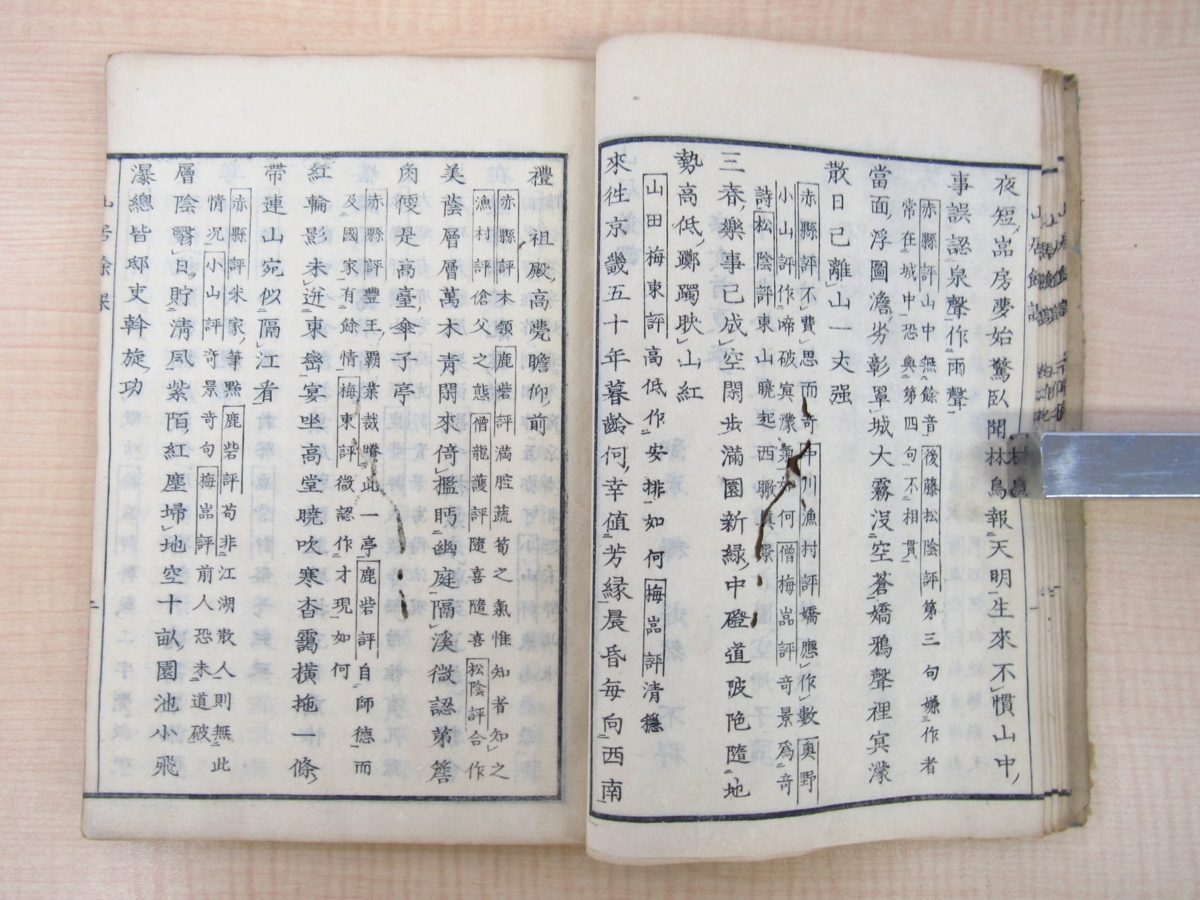 夜短嵓房夢始驚臥聞林烏報天明生來不慣山中
事誤認泉聲作雨聲
赤縣評山中無餘音後藤松陰評第三句嫌作者
常在城中恐與第四句不相貫
當面浮圖澹劣彰單城大霧沒空蒼嬌鴉聲裡冥濛
散日已離山一丈强
赤縣評不費思而奇中川漁村評嬌應作數奥野
小山評作啼破冥濛如何僧梅嵓評奇景爲奇
詩松陰評東山曉起西眺眞景
三春樂事已成空閑步滿園新緑中磴道陂陁隨地
勢高低躑躅映山紅
山田梅東評高低作安排如何梅嵓評清穩
來往京畿五十年暮齡何幸値芳縁晨昏每向西南
禮祖殿高甍瞻仰前
赤縣評本領鹿砦評滿腔蔬筍之氣惟知者知之
漁村評傖父之態僧龍護評隨喜隨喜松陰評合作
美蔭層層萬木青閑來倚檻眄幽庭隔溪微認茅簷
角便是高臺傘子亭
赤縣評豐王霸業裁賸此一亭鹿砦評自師德而
及國家有餘情梅東評微認作才現如何
紅輪影未迸東巒宴坐高堂曉吹寒杳靄橫拖一條
帶連山宛似隔江看
赤縣評米家筆黙鹿砦評苟非江湖散人則無此
情况小山評奇景奇句梅嵓評前人恐未道破
層陰翳日貯清風紫陌紅塵埽地空十畝園池小飛
瀑總皆邸吏斡旋功